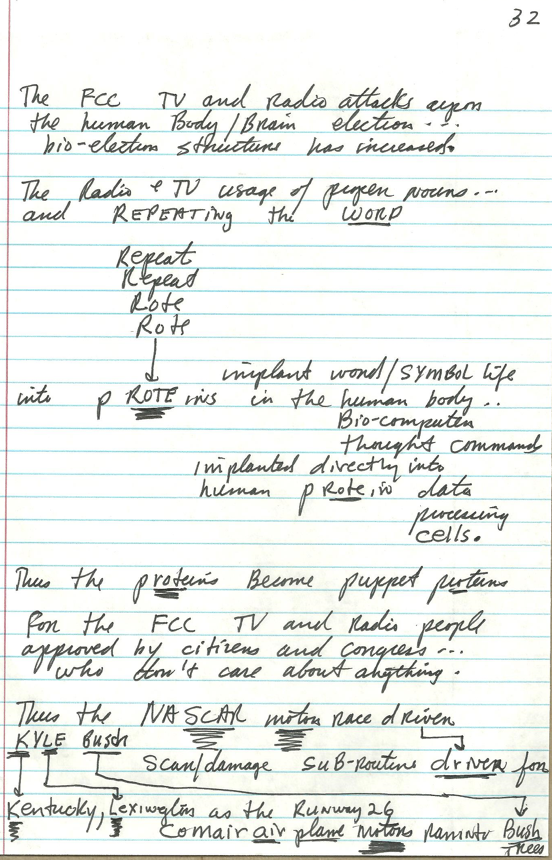 32
The FCC TV and Radio attacks upon
the human Body/Brain election ...
bio-election structure has increased.
The Radio & TV usage of proper nouns...
and REPEATING the WORD
Repeat
Repeat
Rote
Rote
implant word/SYMBOL life
into pROTEins in the human body..
Bio-computer
thought command
implanted directly into
human pRotein data
processing
cells.
Thus the proteins Become puppet proteins
for the FCC TV and Radio people
approved by citizens and congress...
who don't care about anything.
Thus the NASCAR motor race driver
KYLE Busch
Scan/damage SUB-Routine driver for
Kentucky, Lexington as the Runway 26
Comair air plane motors ram into Bush
Trees